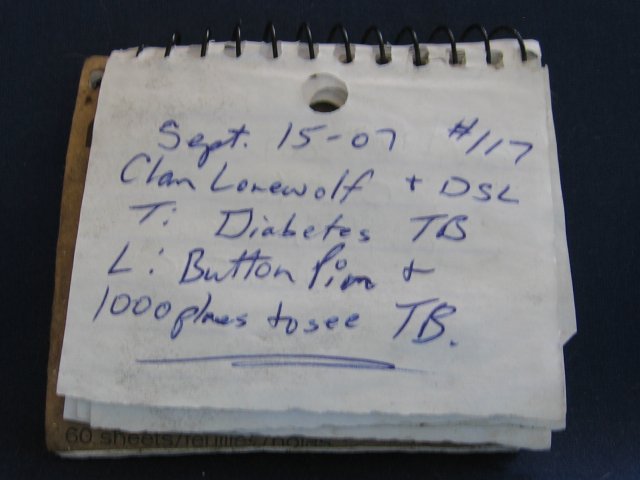 Sept. 15-07 #117
Clan Lonewolf + DSL
T: Diabetes TB
L: Button Pin +
1000 places to see TB.
60 sheets/feuilles/hojas